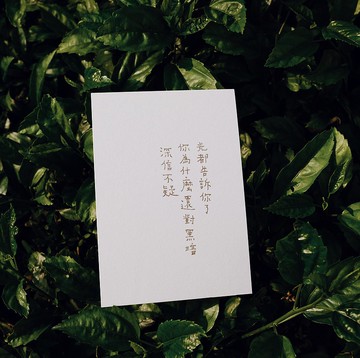 光都告訴你了
你為什麼還對黑暗
深信不疑